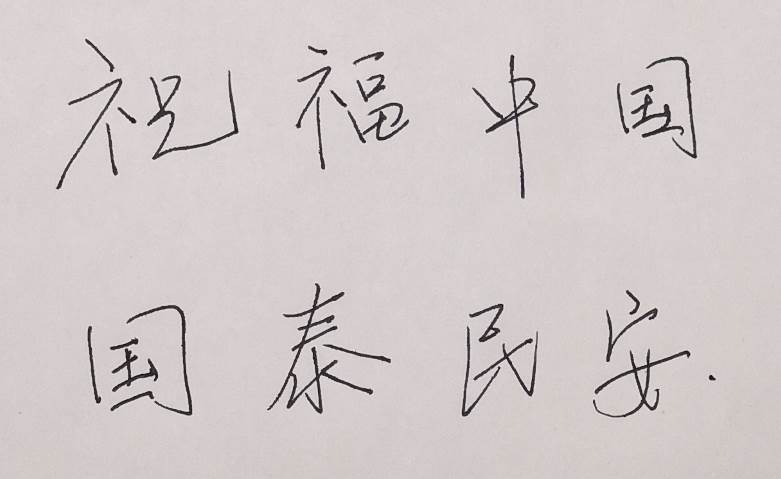 祝福中国
国泰民安.